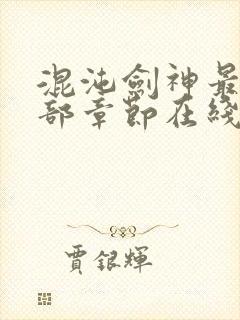 混沌劍神最
部章節在綫
賈銀輝